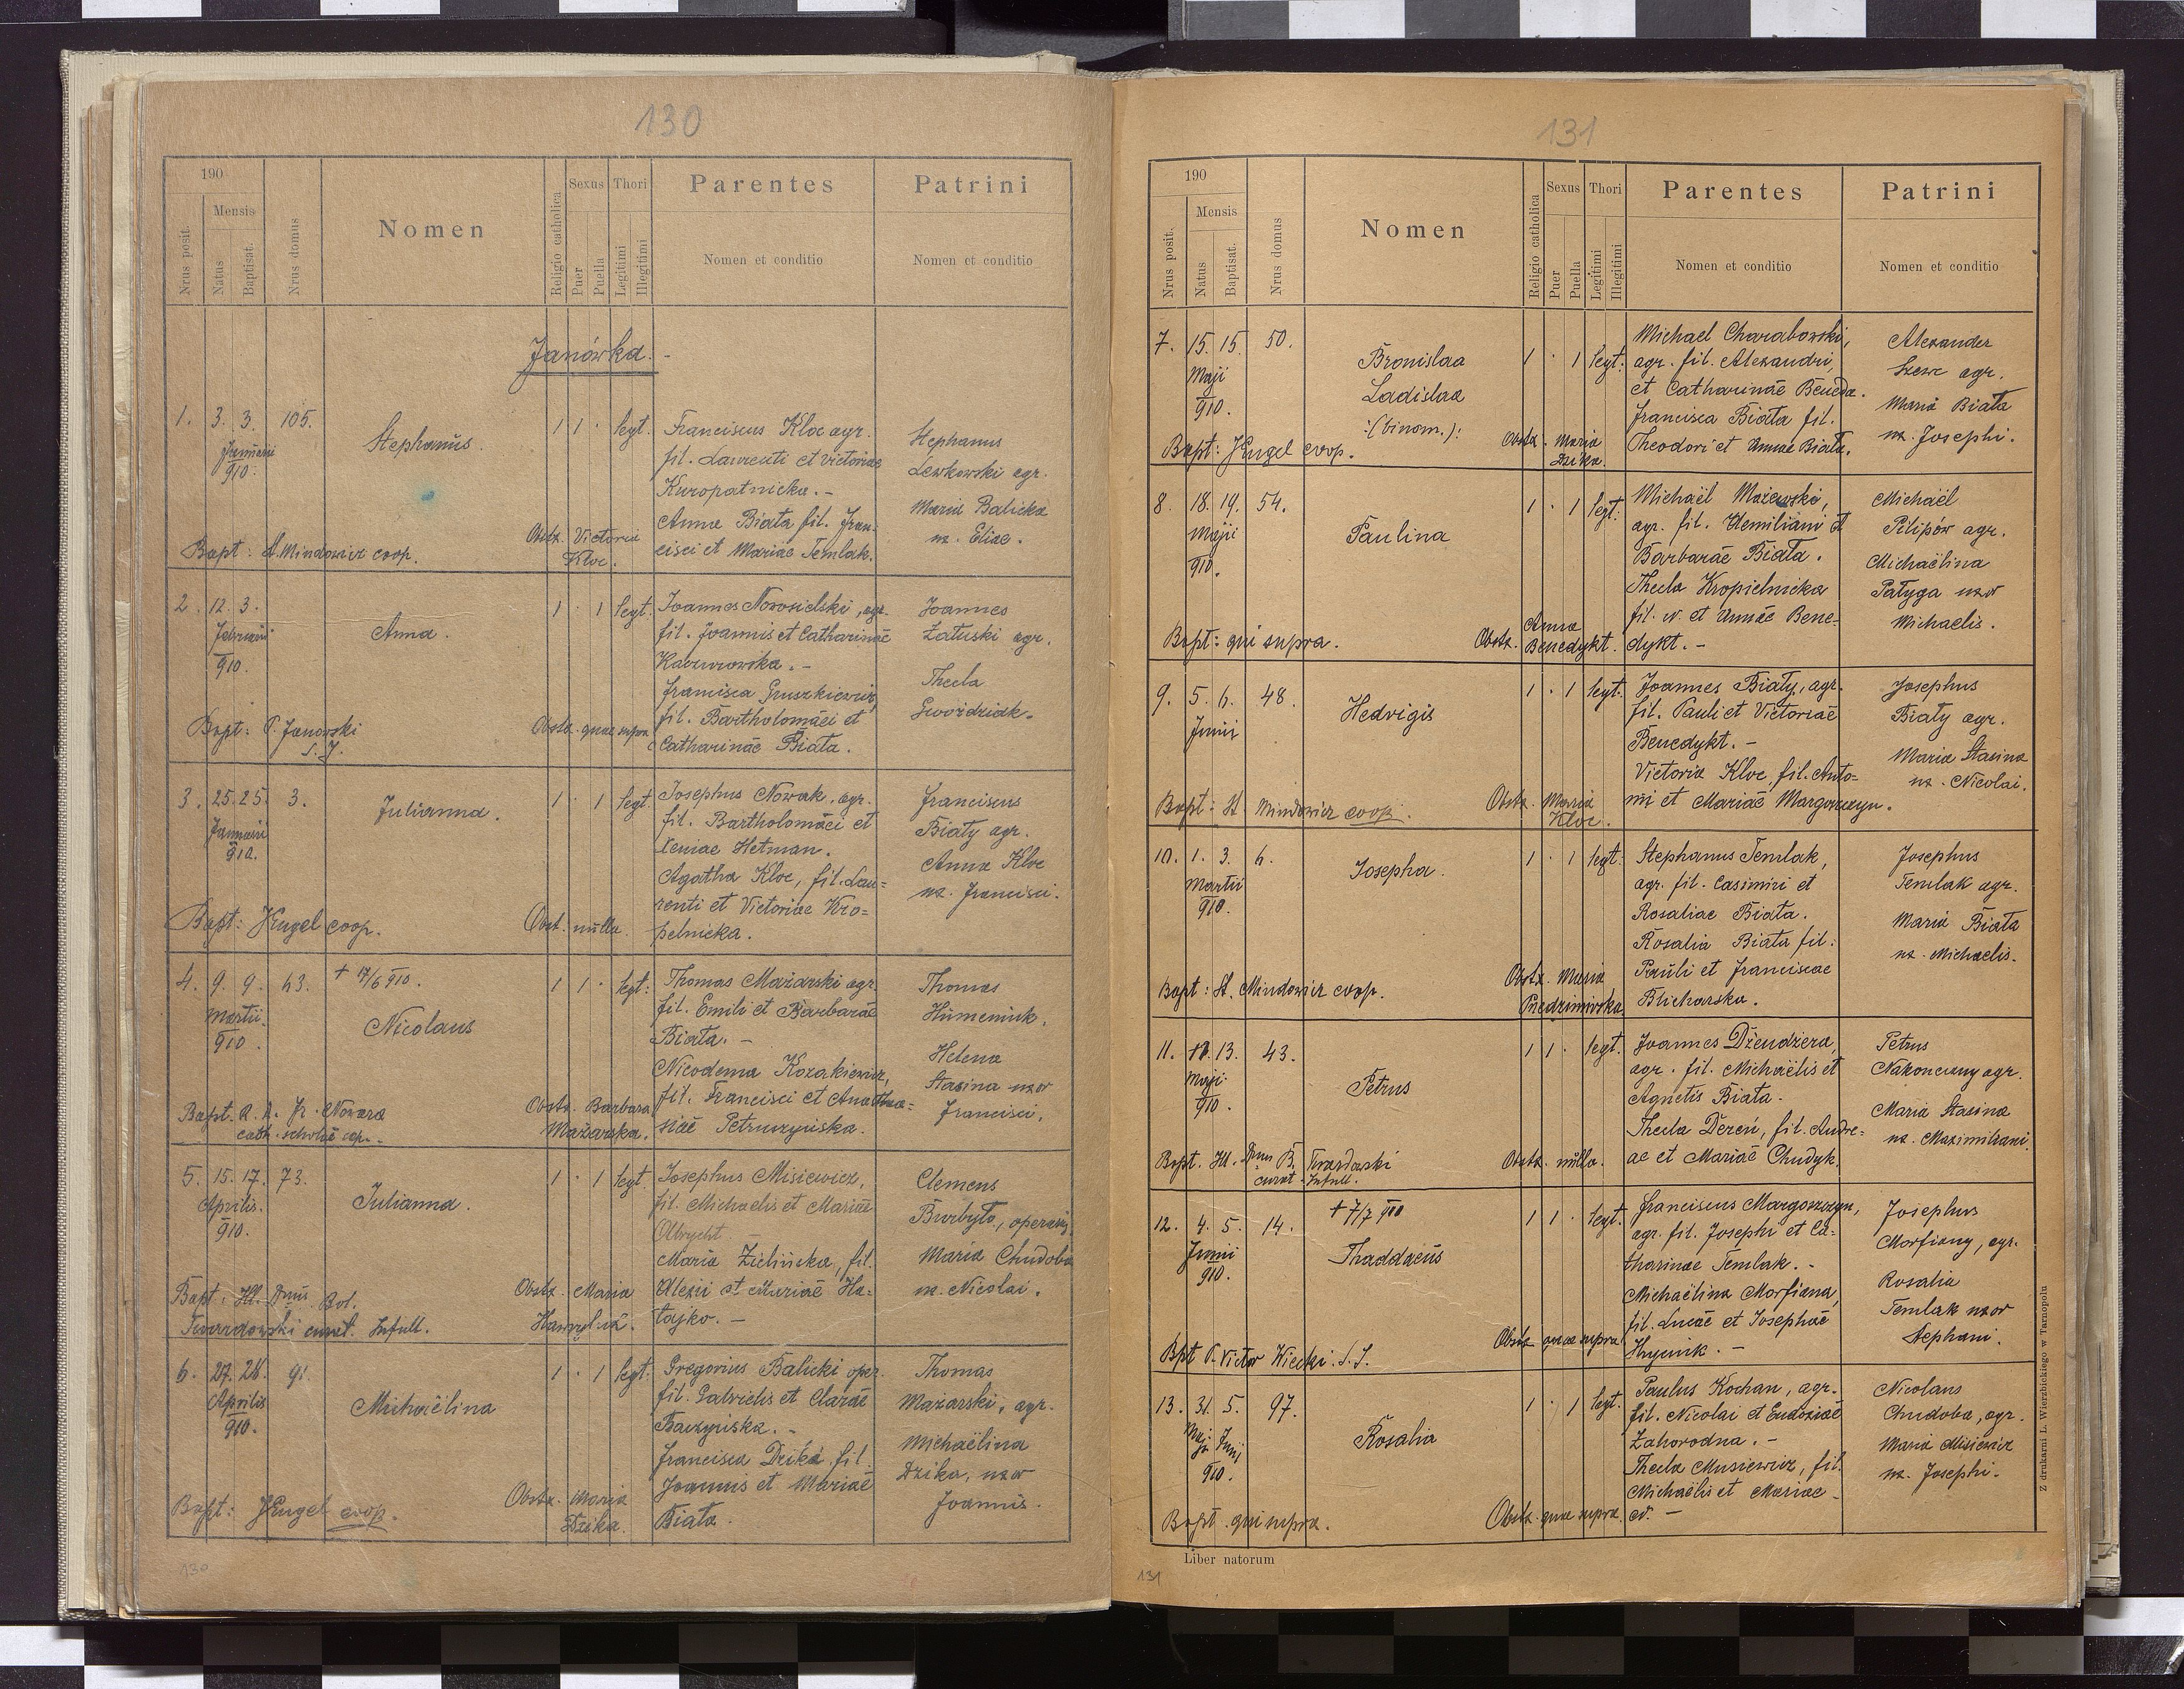 130
190
Mensis
Nrus posit.
Natus
Baptisat.
Nrus domus
Nomen
Religio catholica
Sexus
Puer
Puella
Thori
Legitimi
Illegitimi
Parentes
Nomen et conditio
Patrini
Nomen et conditio
Janówka. -
1. 3. 3. 105.
Januarii
910.
Stephanus.
1 1 · legt.
Franciscus Kloc agr.
fil. Laurenti et Victoriae
Kuropatnicka. -
Anna Biała fil. Fran-
cisci et Mariae Temlak.
Stephanus
Lewkowski agr.
Maria Balicka
ux. Eliae.
Bapt: St Mindowicz coop.
Obstx. Victoria
Kloc.
2. 12. 3.
Februarii
910.
Anna.
1 · 1 legt.
Joannes Nowosielski, agr.
fil. Joannis et Catharinae
-
Francisca Gruszkiewicz,
fil. Bartholomaei et
Catharinae Biała.
Joannes
Załuski agr.
Thecla
Gwoździak.
Bapt: P. Janowski
S. J.
Obstx. quae supra
3. 25. 25. 3.
Januarii
910.
Julianna.
1 · 1 legt.
Josephus Nowak, agr.
fil. Bartholomaei et
Xeniae Hetman.
Agatha Kloc, fil. Lau-
renti et Victoriae Kro-
pelnicka.
Franciscus
Biały agr.
Anna Kloc
ux. Francisci.
Bapt: J Engel coop.
Obst. nulla.
4. 9. 9. 63. + 17/6 910.
Martii
910.
Nicolaus
1 1 · legt:
Thomas Mażarski agr
fil. Emili et Barbarae
Biała. -
Nicodema Kozakiewicz,
fil. Francisci et Anastha-
siae Petruszyńska.
Thomas
Humeniuk.
Helena
Stasina uxor
Francisci.
Bapt. R. A. Fr. Nowara
cath. scholae
Obstx. Barbara
Mażarska.
5. 15. 17. 73.
Aprilis.
910.
Julianna.
1 · 1 legt
Josephus Misiewicz,
fil. Michaelis et Mariae
Olbrycht. -
Maria Zielińska, fil.
Alexii et Mariae Ha-
tajko. -
Clemens
Burbyło,
Maria Chudoba
ux. Nicolai.
Bapt. Ill. Dnus Bol.
Twardowski curat. Infull.
Obstx. Maria
6. 27. 28. 91.
Aprilis
910.
Michaëlina
1 · 1 legt.
Gregorius Balicki oper.
fil. Gabrielis et Clarae
Baczyńska. -
Francisca Dzika fil.
Joannis et Mariae
Biała.
Thomas
Mażarski, agr.
Michaëlina
Dzika, uxor
Joannis.
Bapt: J Engel coop.
Obstx. Maria
Dzika.
130
131
190
Mensis
Nrus posit.
Natus
Baptisat.
Nrus domus
Nomen
Religio catholica
Sexus
Puer
Puella
Thori
Legitimi
Illegitimi
Parentes
Nomen et conditio
Patrini
Nomen et conditio
7. 15. 15. 50.
Maji
910.
Bronislaa
Ladislaa
:(binom.):
1 · 1 legt.
Michael Charabowski,
agr. fil. Alexandri,
et Catharinae Beneda.
Francisca Biała fil.
Theodori et Annae Biała.
Alexander
Szewc agr.
Maria Biała
ux. Josephi.
Bapt: J Engel coop.
Obstx. Maria
Dzika.
8. 18. 19. 54.
Maji
910.
Paulina
1 · 1 legt.
Michaël Mażewski,
agr. fil. Aemiliani et
Barbarae Biała.
Thecla Kropielnicka
fil. N. et Annae Bene-
dykt. -
Michaël
Pilipów agr.
Michaëlina
Pałyga uxor
Michaelis.
Bapt: qui supra.
Obstx. Anna
Benedykt.
9. 5. 6. 48.
Junii
Hedvigis
1 · 1 legt.
Joannes Biały, agr.
fil. Pauli et Victoriae
Benedykt. -
Victoria Kloc, fil. Anto-
ni et Mariae Margaszyn.
Josephus
Biały agr.
Maria Stasina
ux. Nicolai.
Bapt: St Mindowicz coop.
Obstx. Maria
Kloc.
10. 1. 3. 6.
Martii
910.
Josepha.
1 · 1 legt.
Stephanus Temlak,
agr. fil. Casimiri et
Rosaliae Biała.
Rosalia Biała fil:
Pauli et Franciscae
Blicharska.
Josephus
Temlak agr.
Maria Biała
ux. Michaelis.
Bapt: St. Mindowicz coop.
Obstx. Maria
Niedzimirska
11. 11. 13. 43.
Maji
910.
Petrus
1 1 · legt.
Joannes Dżendżera,
agr. fil. Michaëlis et
Agnetis Biała.
Thecla Dereń, fil. Andre-
ae et Mariae Chudyk.
Petrus
Nakoneczny agr.
Maria Stasina
ux. Maximiliani
Bapt. Ill. Dnus B. Twardowski
curat. Infull.
Obstx. nulla.
12. 4. 5. 14. + 7/7 910
Junii
910.
Thaddaeus
1 1 · legt.
Franciscus Margoszczyn,
agr. fil. Josephi et Ca-
tharinae Temlak. -
Michaëlina Morfiana,
fil. Lucae et Josephae
Hryciuk. -
Josephus
Morfiany, agr.
Rosalia
Temlak uxor
Stephani.
Bpt P. Victor Wiecki. S. J.
Obstx quae supra
13. 31. 5. 97.
Maji Junj
910.
Rosalia
1 · 1 legt.
Paulus Kochan, agr.
fil. Nicolai et Eudoxiae
Zahorodna. -
Thecla Musiewicz, fil.
Michaëlis et Mariae
N. -
Nicolaus
Chudoba, agr.
Maria Misiewicz
ux. Josephi.
Bapt. qui supra.
Obstx. quae supra.
Liber natorum
Z drukarni L. Wierzbickiego w Tarnopolu
131